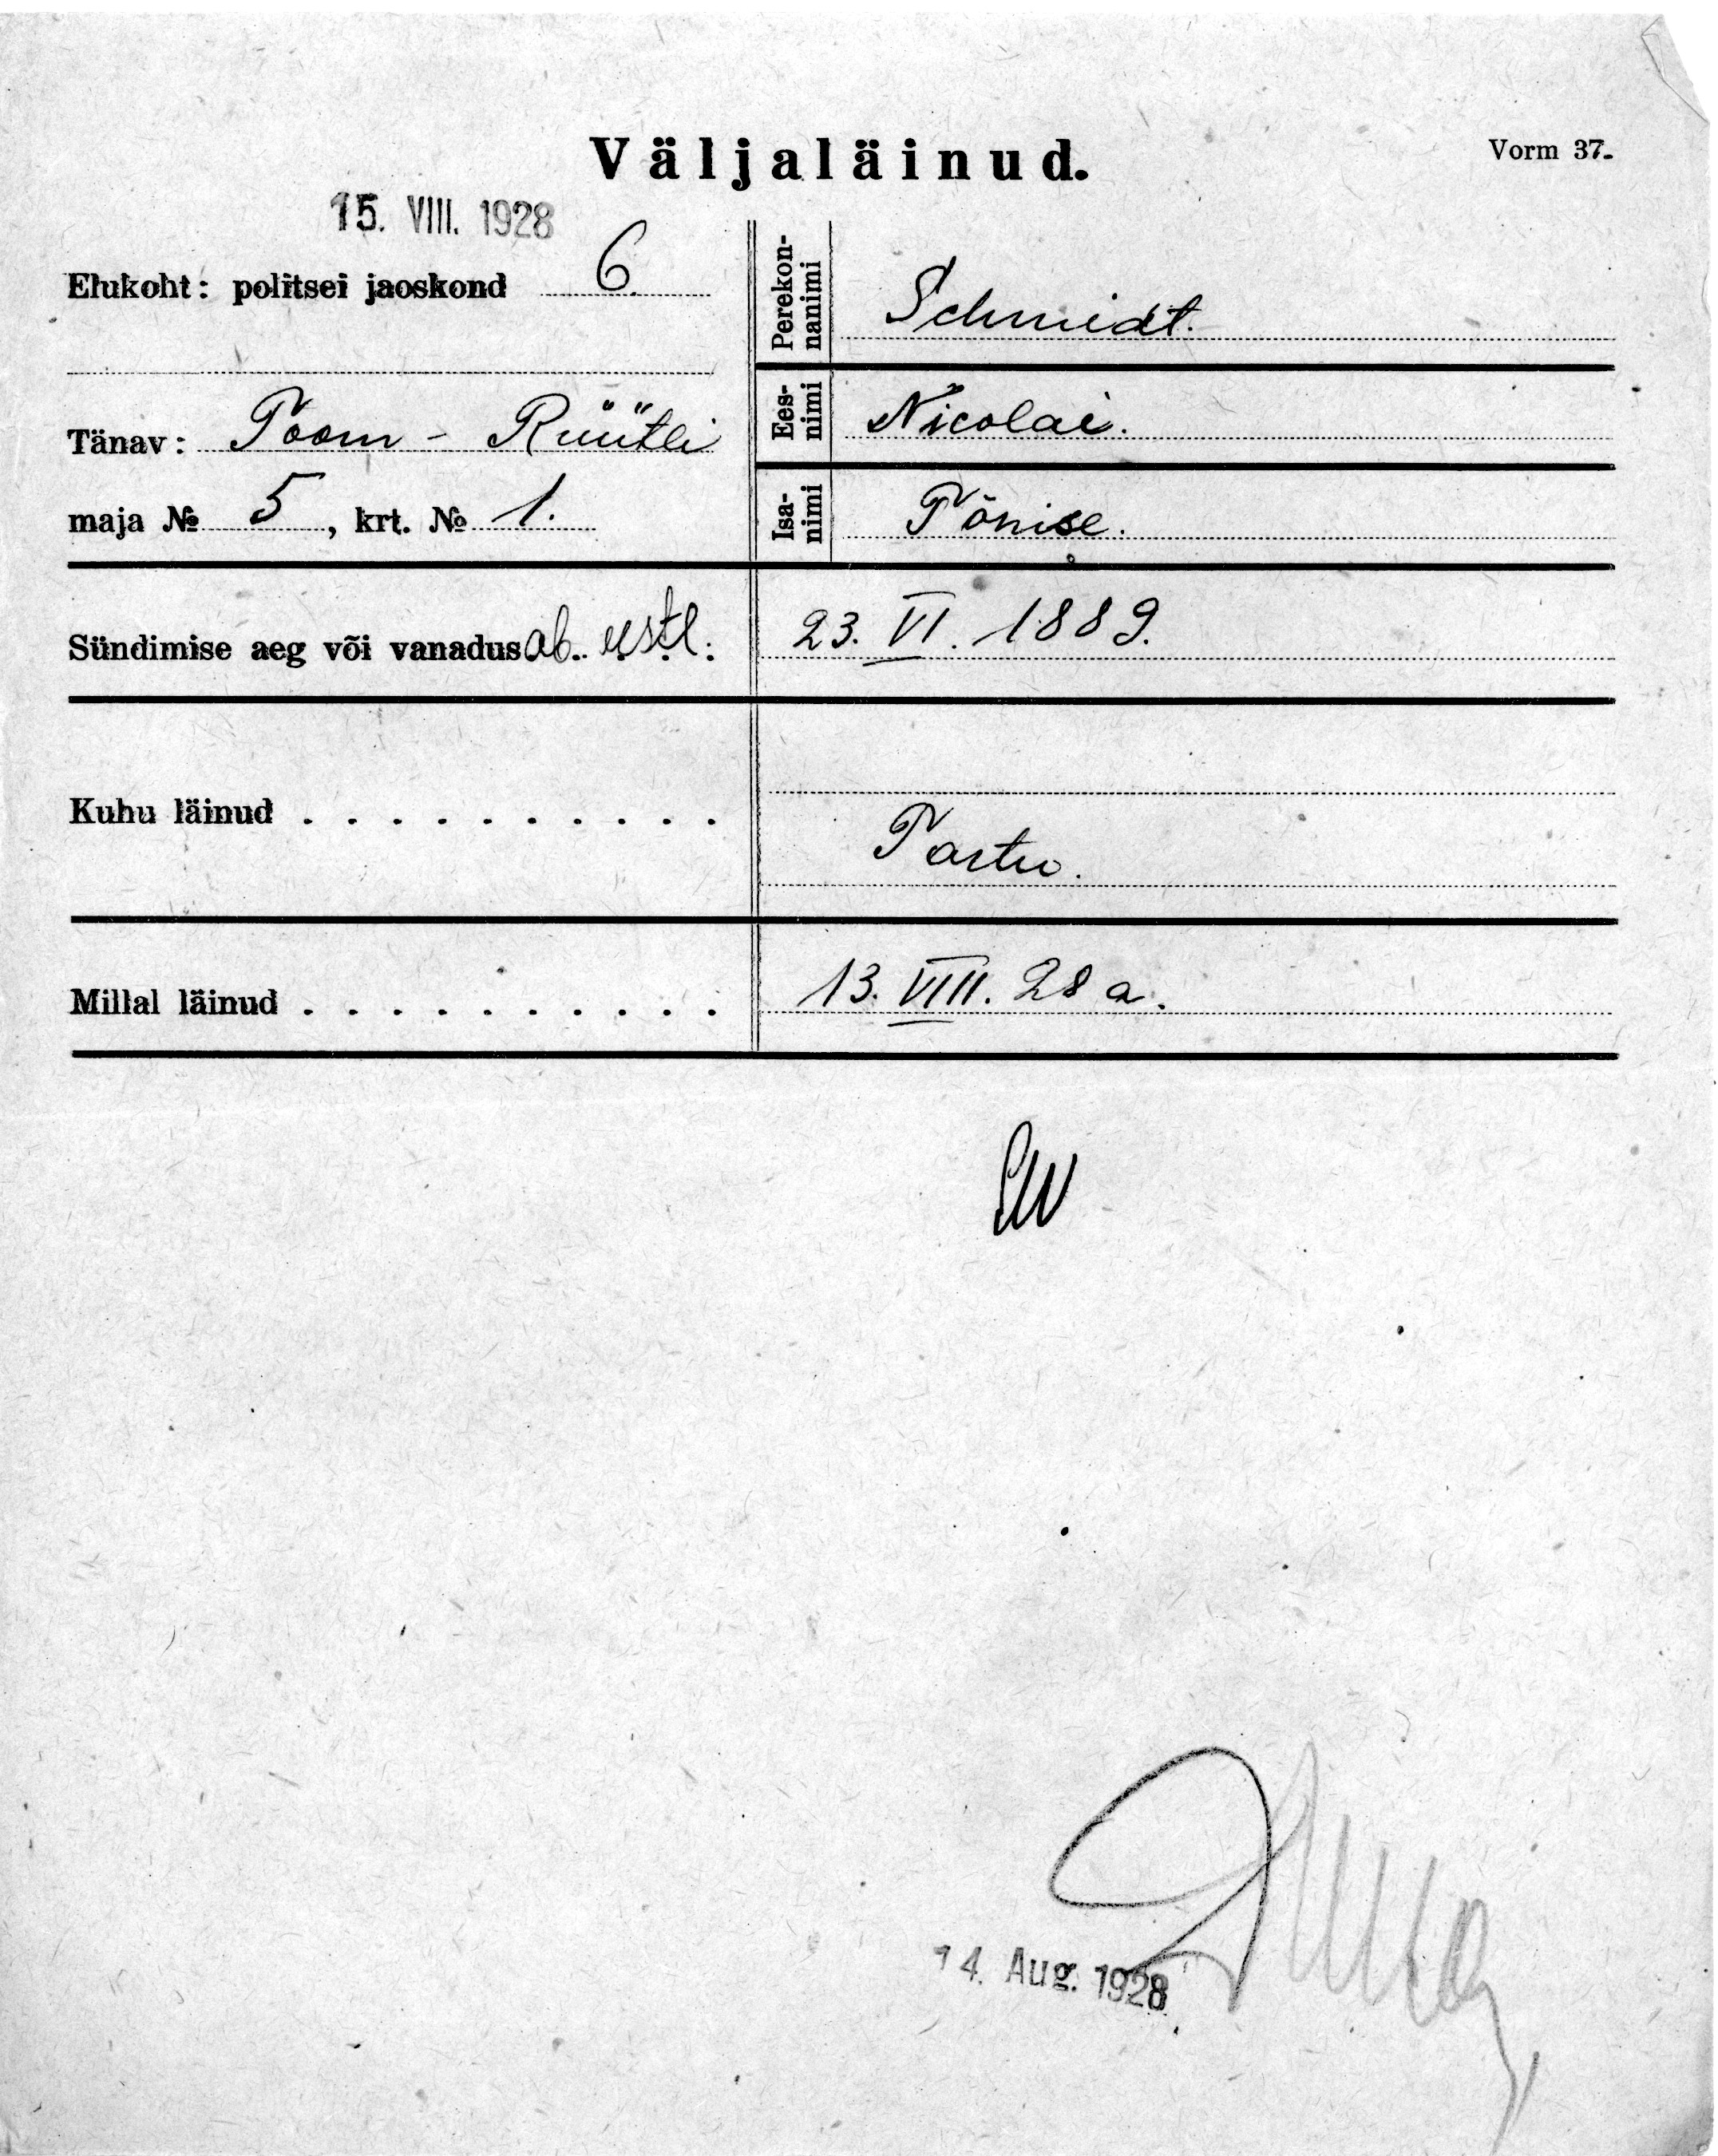 Väljaläinud.
Vorm 37.
15. VIII. 1928
Elukoht: politsei jaoskond 6.
Tänav: Toom - Rüütli
maja № 5, krt. № 1.
Perekonnanimi Schmidt.
Eesnimi Nicolai.
Isanimi Tõnise.
Sündimise aeg või vanadus ab. eestl. 23. VI. 1889.
Kuhu läinud . . . . . . . . . . Tartu.
Millal läinud . . . . . . . . . . 13. VIII. 28 a.
14. Aug. 1928